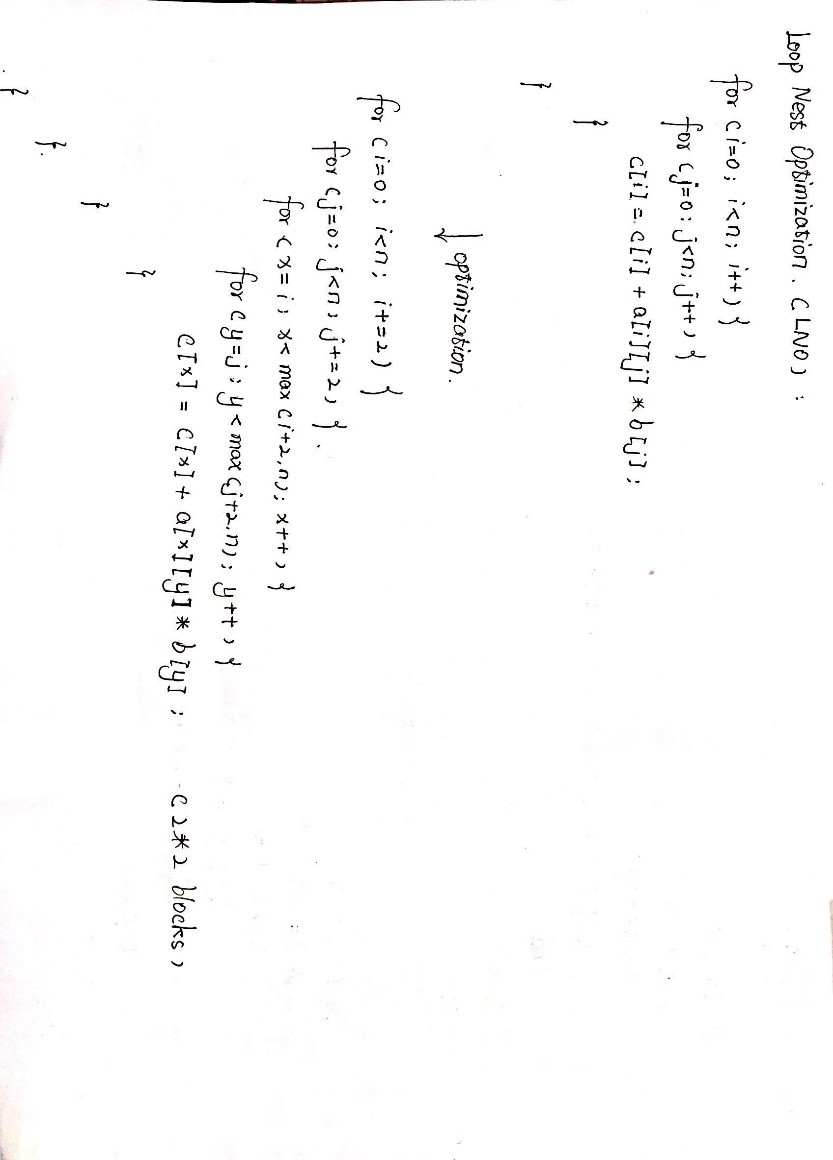 Loop Nest Optimization. (LNO) :
for (i=0; i<n; i++) {
for (j=0; j<n; j++) {
c[i] = c[i] + a[i][j] * b[j];
}
}
↓ optimization.
for (i=0; i<n; i+=2) {
for (j=0; j<n; j+=2) {.
for (x=i; x<max(i+2,n); x++) {
for (y=j; y<max(j+2,n); y++) {
c[x] = c[x] + a[x][y] * b[y]; (2*2 blocks)
}
}
}.
}